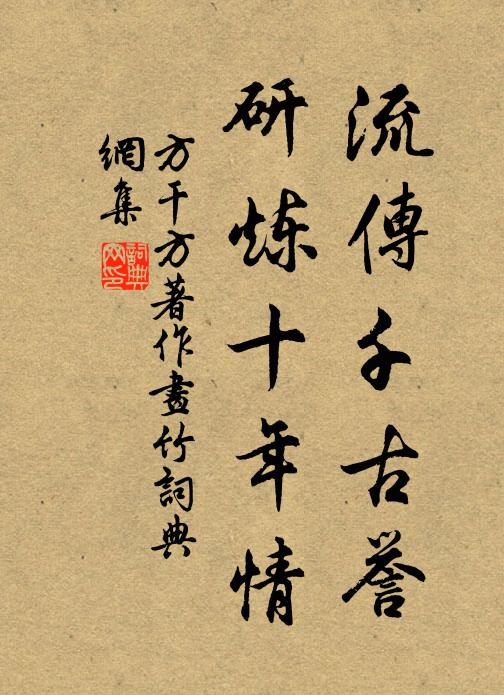 流傳千古譽
研炼十年情
方干方著作畫竹詞典
網集
詞典網印